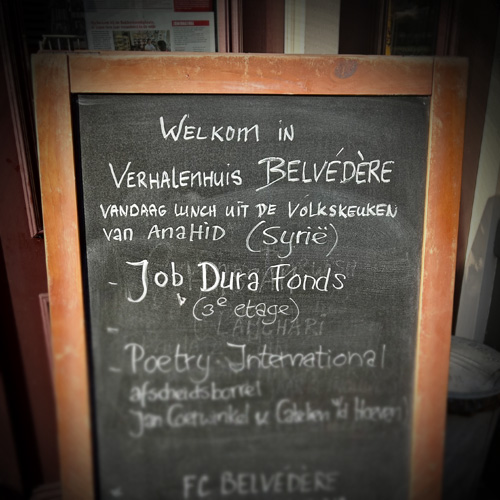 WELKOM IN
VERHALENHUIS BELVÉDÈRE
VANDAAG LUNCH UIT DE VOLKSKEUKEN
van ANAHID (Syrië)
- Job Dura Fonds
(3e etage)
-
- Poetry International
afscheidsborrel
Jan
FC BELVÉDÈRE